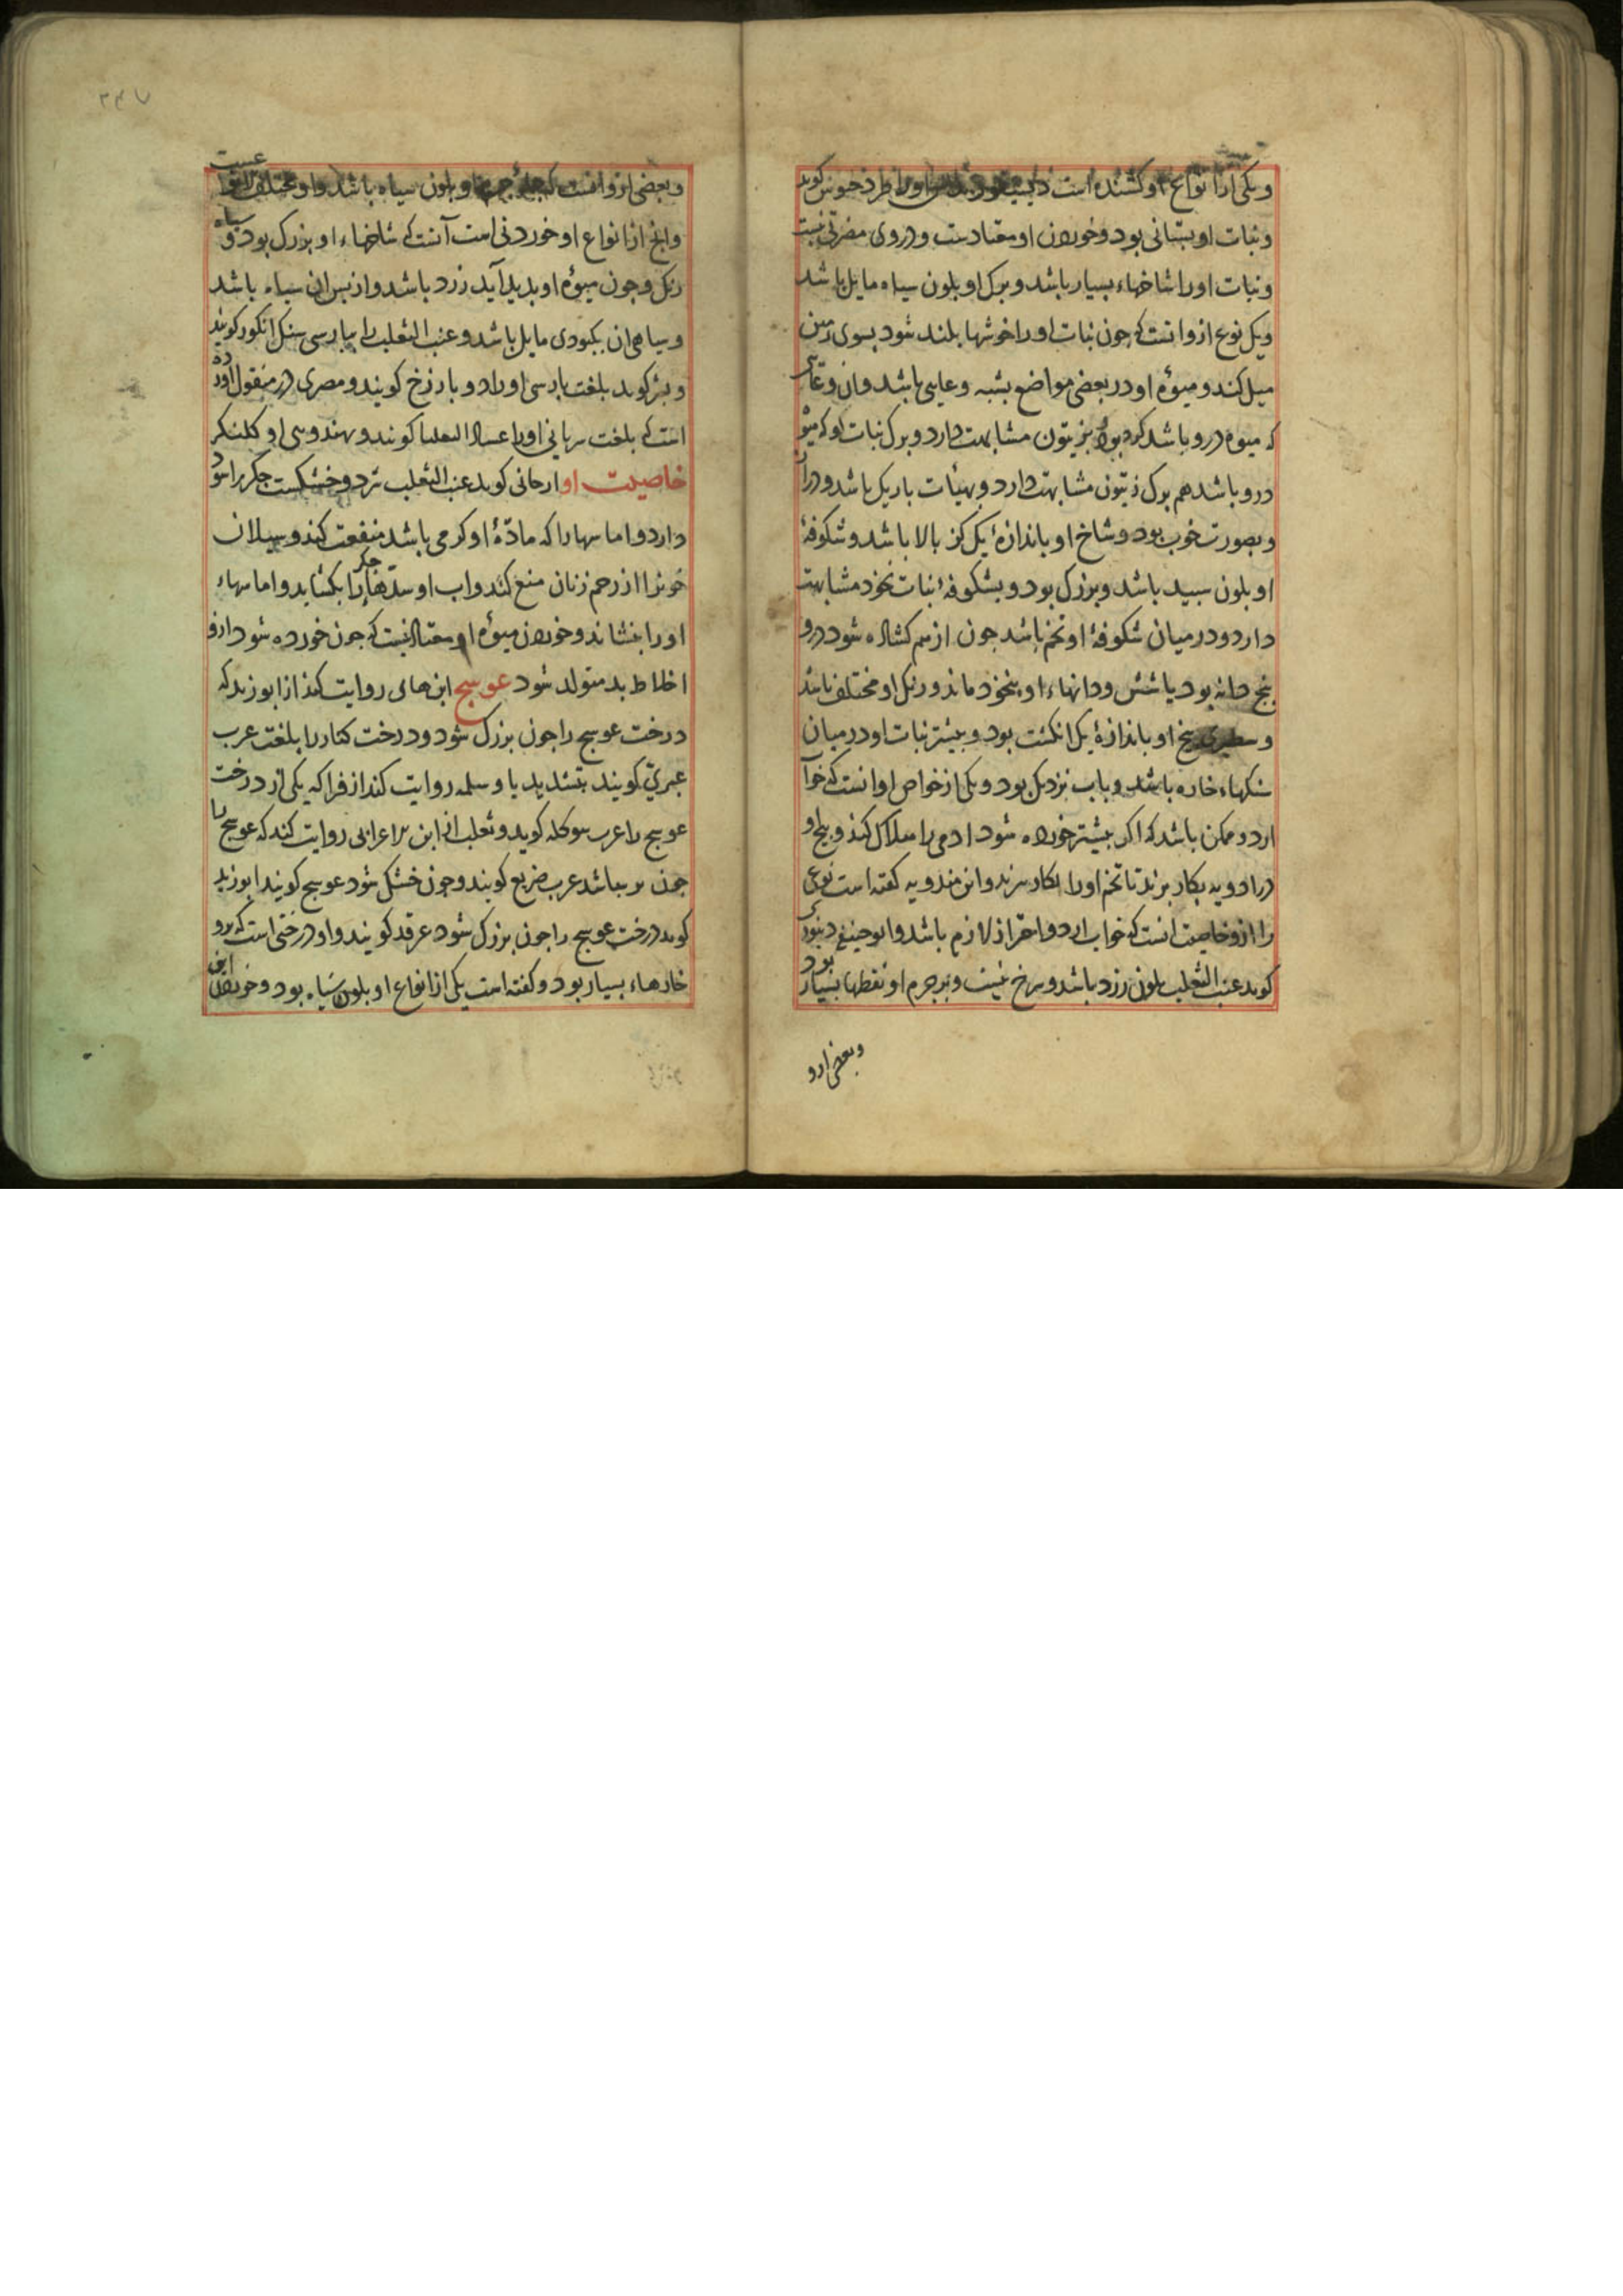 ویکی ازانواع او کشنده است
ونبات او بستانی بود وخوردن او معتادست ودروی مضرتی نیست
ونبات اورا شاخهاء بسیار باشد وبرک او بلون سیاه مایل باشد
ویک نوع ازوانست که جون نبات اورا خوشها بلند شود بسوی زمین
میل کند ومیوۀ او در بعضی مواضع بشبه وعایی باشد وان وعائی
که میوه درو باشد کرد بود بزیتون مشابهت دارد وبرک نبات او که میو
درو باشد هم برک زیتون مشابهت دارد وبهیئات باریک باشد ودراز
وبصورت خوب بود وشاخ او باندازۀ یک کز بالا باشد وشکوفۀ
او بلون سبید باشد وبزرک بود وبشکوفۀ نبات نخود مشابهت
دارد ودر میان شکوفۀ او تخم باشد جون ازهم کشاده شود درو
بنج دانه بود یا شش ودانهاء او بنخود ماند ورنک او مختلف باشد
وسطبری بیخ او باندازۀ یک انکشت بود وبیشتر نبات او در میان
سنکهاء خاره باشد وباب نزدیک بود ویکی از خواص او انست که خوا
ارد وممکن باشد که اکر بیشتر خورده شود ادمی را هلاک کند وبیخ او
در ادویه بکار برند تا تخم اورا بکار برند وابن مندویه کفته است نوعی
را ازو خاصیت انست که خواب ارد واحتراز لازم باشد وابوحنیفه دینوری
کوید عنب الثعلب بلون زرد باشد وسرخ نیست وبرجرم او نقطها بسیار بود
وبعضی ازو
۲۴۷
وبعضی ازو انست که بلون سیاه باشد واو مختلف
وانج ازانواع او خوردنی است آنست که شاخهاء او بزرک بود و سیاه
رنک وجون میوۀ او بدید آید زرد باشد واز بس ان سیاه باشد
وسیاهی ان بکبودی مایل باشد وعنب الثعلب را ببارسی سنک انکور کویند
کوید بلغت بارسی اورا کویند ومصری در منقول اورده
است که بلغت سریانی اورا کویند وبهندوی او کلنکر
خاصیت او ارجانی کوید عنب الثعلب سرد وخشکست جکر را سود
دارد واماسهارا که مادۀ او کرمی باشد منفعت کند وسیلان
خونرا از رحم زنان منع کند واب او سدهاء جکر را بکشاید واماسهاء
اورا بنشاند وخوردن میوۀ او معتاد نیست که جون خورده شود ازو
اخلاط بد متولد شود عوسج ابن هانی روایت کند از ابوزید که
درخت عوسج را جون بزرک شود ودرخت کنار را بلغت عرب
عبریّ کویند بتشدید یا وسلمه روایت کند از فرا که یکی از درخت
عوسج را عرب کوید وثعلب از ابن اعرابی روایت کند که عوسج را
جون باشد عرب ضریع کویند وجون خشک شود عوسج کویند ابوزید
کوید درخت عوسج را جون بزرک شود غرقد کویند واو درختی است که برو
خارهاء بسیار بود وکفته است یکی از انواع او بلون سیاه بود وخوردن این